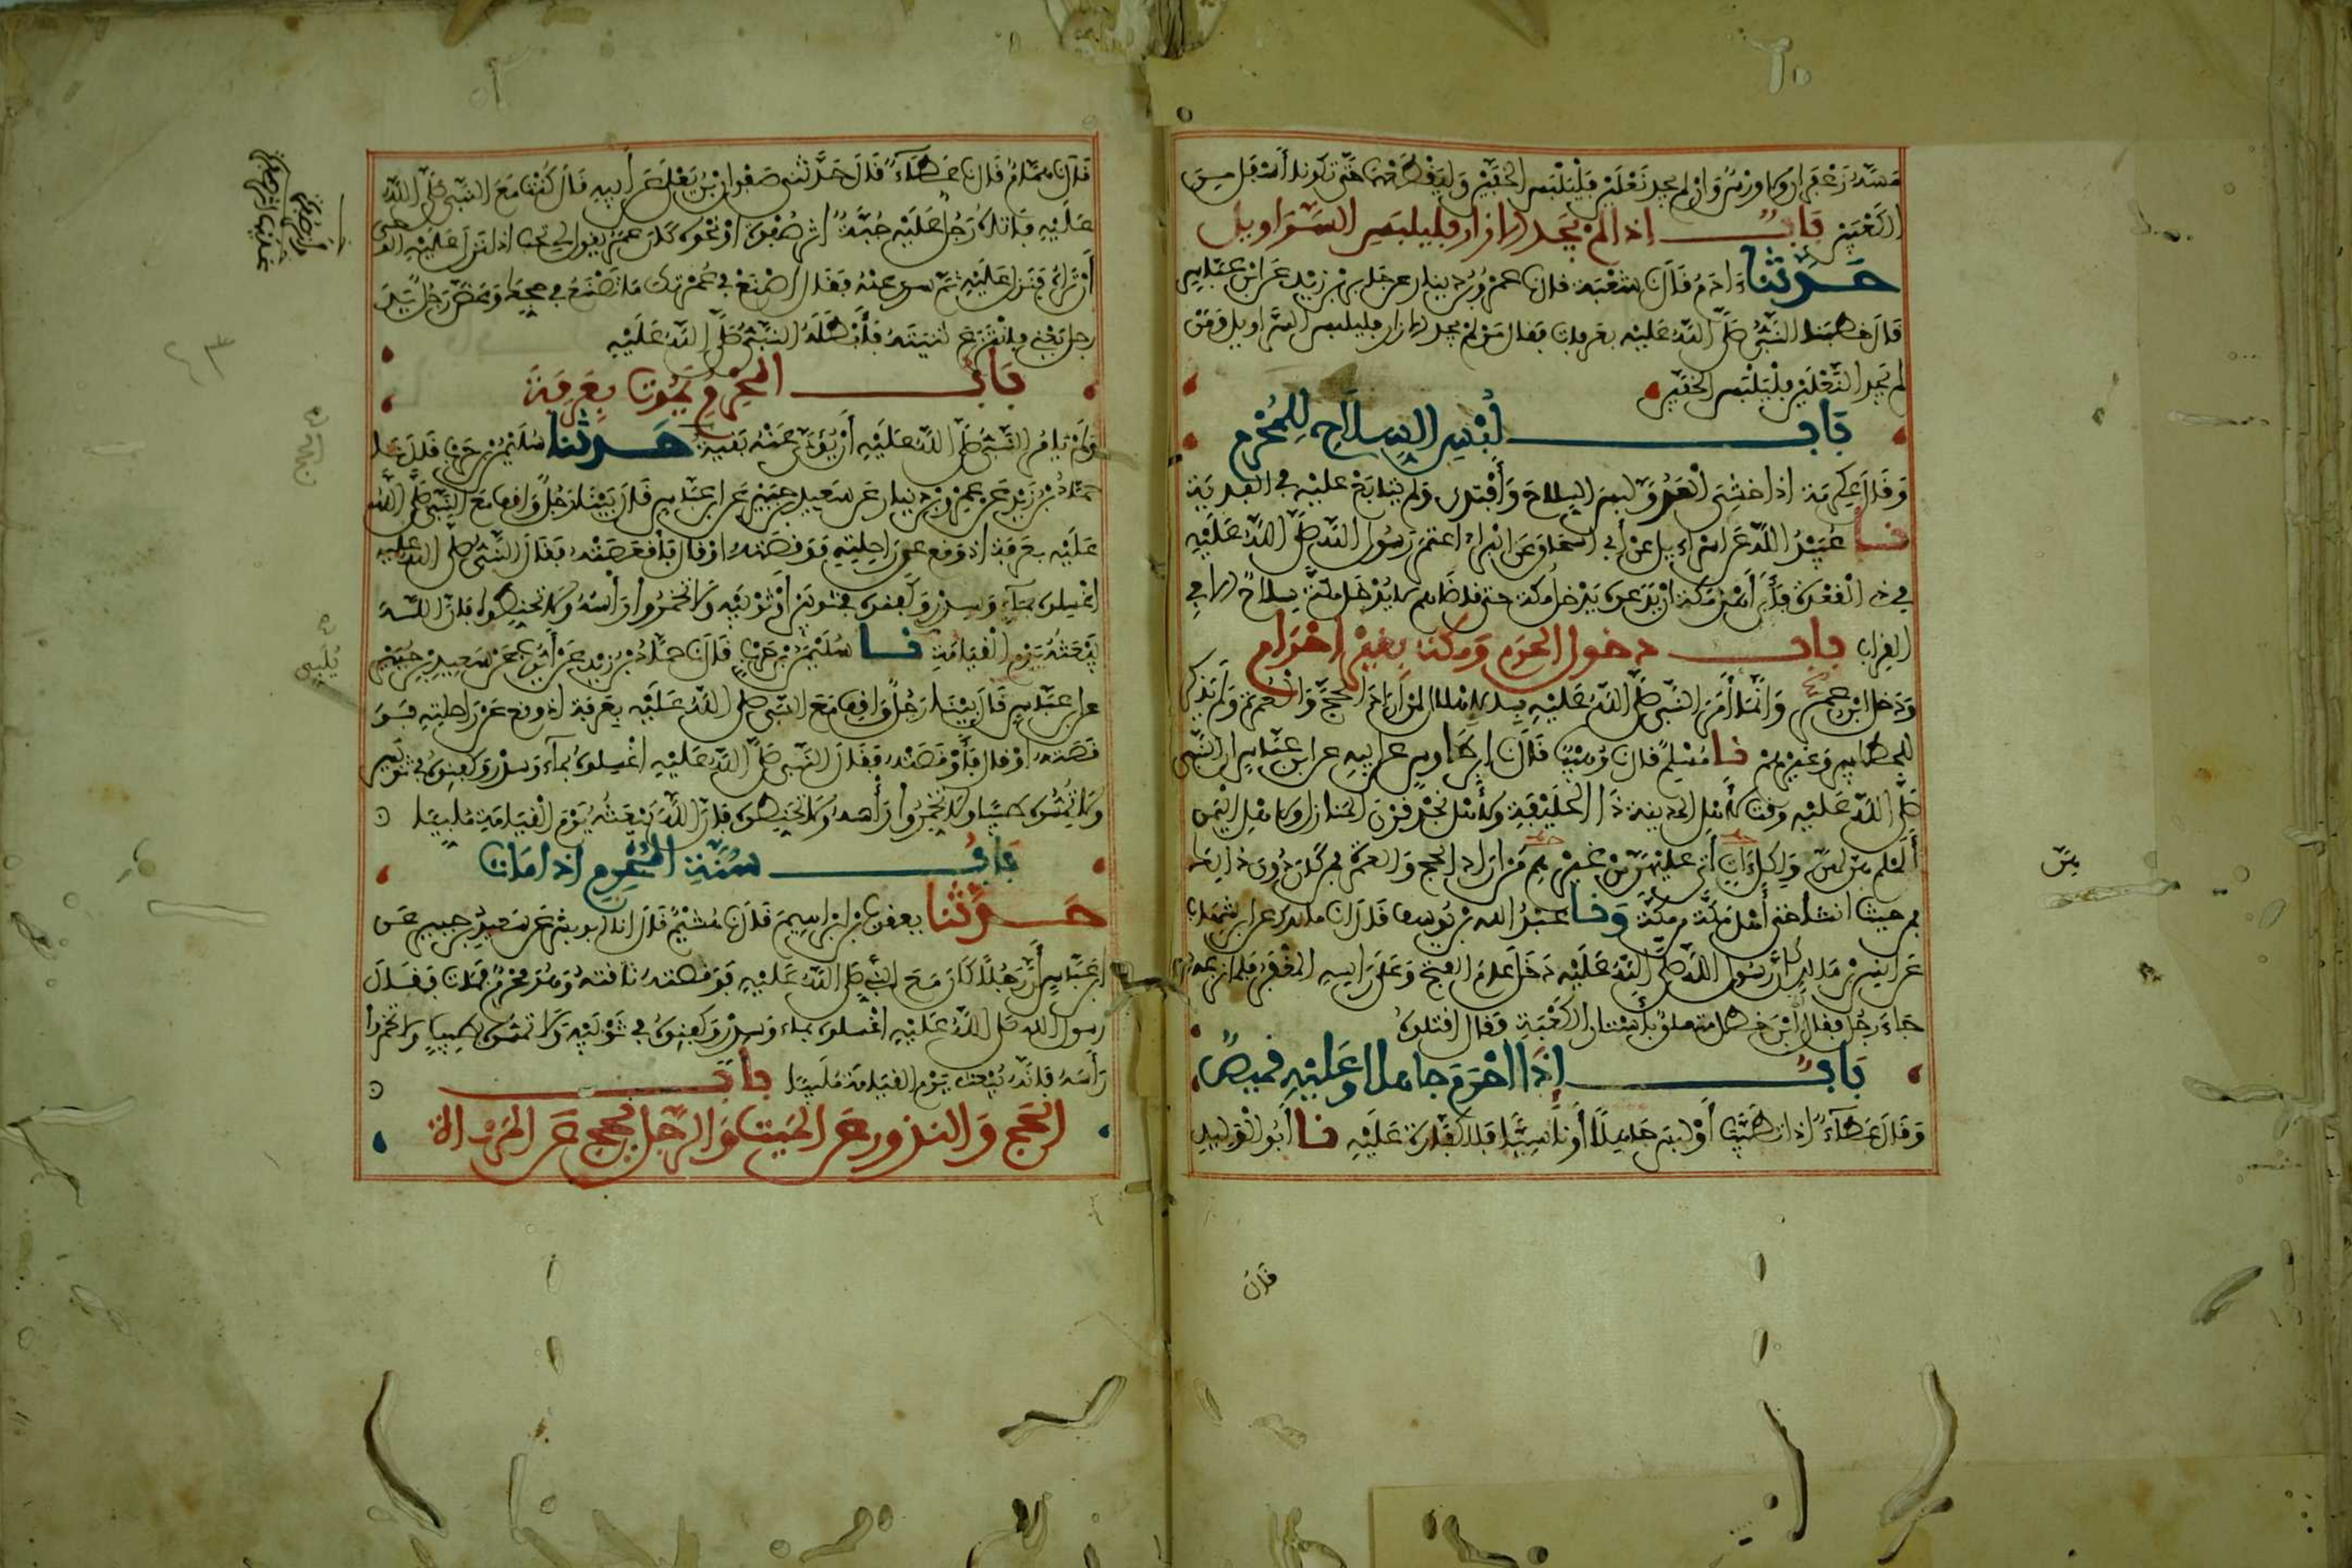 مسه زعفران ولا ورس وان لم يجد نعلين فليلبس الخفين وليقطعهما حتى تكونا أسفل من
الكعبين باب اذا لم يجد الازار فليلبس السراويل
حدثنا ءادم قال نا شعبة قال نا عمرو بن دينار عن جابر بن زيد عن ابن عباس
قال خطبنا النبي صلى الله عليه بعرفات فقال من لم يجد الازار فليلبس السراويل ومن
لم يجد النعلين فليلبس الخفين
باب لبس السلاح للمحرم
وقال عكرمة اذا خشي العدو لبس السلاح وافتدى ولم يتابع عليه في الفدية
نا عبيد الله عن اسراءيل عن أبي اسحاق عن البراء اعتمر رسول الله صلى الله عليه
في ذي القعدة فأبى أهل مكة ان يدعوه يدخل مكة حتى قاضاهم لا يدخل مكة سلاح الا في
القراب باب دخول الحرم ومكة بغير احرام
ودخل ابن عمر وانما أمر النبي صلى الله عليه بالاهلال لمن اراد الحج والعمرة ولم يذكر
للحطابين وغيرهم نا مسلم قال نا وهيب قال نا ابن طاوس عن ابيه عن ابن عباس ان النبي
صلى الله عليه وقت لأهل المدينة ذا الحليفة ولأهل نجد قرن المنازل ولاهل اليمن
ألملم هن لهن ولكل ءات أتى عليهن من غيرهم من اراد الحج والعمرة فمن كان دون ذلك
فمن حيث انشأ حتى أهل مكة من مكة ونا عبد الله بن يوسف قال نا مالك عن ابن شهاب
عن انس بن مالك ان رسول الله صلى الله عليه دخل عام الفتح وعلى رأسه المغفر فلما نزعه
جاء رجل فقال ابن خطل متعلق بأستار الكعبة فقال اقتلوه
باب إذا احرم جاهلا وعليه قميص
وقال عطاء اذا تطيب أو لبس جاهلا أو ناسيا فلا كفارة عليه نا أبو الوليد
هن
قال
قال نا همام قال نا عطاء قال حدثني صفوان بن يعلى عن أبيه قال كنت مع النبي صلى الله
عليه فاتاه رجل عليه جبة اثر صفرة او نحوه كان عمر يقول لي تحب اذا نزل عليه الوحي
أن تراه فنزل عليه ثم سري عنه فقال اصنع في عمرتك ما تصنع في حجك وعض رجل يد
رجل يعني فانتزع ثنيته فأبطله النبي صلى الله عليه
باب المحرم يموت بعرفة
ولم يامر النبي صلى الله عليه أن يؤدى عنه بقية حدثنا سليمن بن حرب قال نا
حماد بن زيد عن عمرو بن دينار عن سعيد بن جبير عن ابن عباس قال بينا رجل واقف مع النبي صلى الله
عليه بعرفة اذ وقع عن راحلته فوقصته او قال فأقعصته فقال النبي صلى الله عليه
اغسلوه بماء وسدر وكفنوه في ثوبين أو ثوبيه ولا تخمروا رأسه ولا تحنطوه فان الله
يبعثه يوم القيامة نا سليمن بن حرب قال نا حماد بن زيد عن أيوب عن سعيد بن جبير
عن ابن عباس قال بينا رجل واقف مع النبي صلى الله عليه بعرفة اذ وقع عن راحلته فو
قصته او قال فأوقصته فقال النبي صلى الله عليه اغسلوه بماء وسدر وكفنوه في ثوبين
ولا تمسوه طيبا ولا تخمروا رأسه ولا تحنطوه فان الله يبعثه يوم القيامة ملبيا
باب سنة المحرم اذا مات
حدثنا يعقوب بن ابراهيم قال نا هشيم قال انا ابو بشر عن سعيد بن جبير عن
ابن عباس أن رجلا كان مع النبي صلى الله عليه فوقصته ناقته وهو محرم فمات فقال
رسول الله صلى الله عليه اغسلوه بماء وسدر وكفنوه في ثوبيه ولا تمسوه بطيب ولا تخمروا
رأسه فانه يبعث يوم القيامة ملبيا باب
الحج والنذور عن الميت والرجل يحج عن المرءاة
يلبي